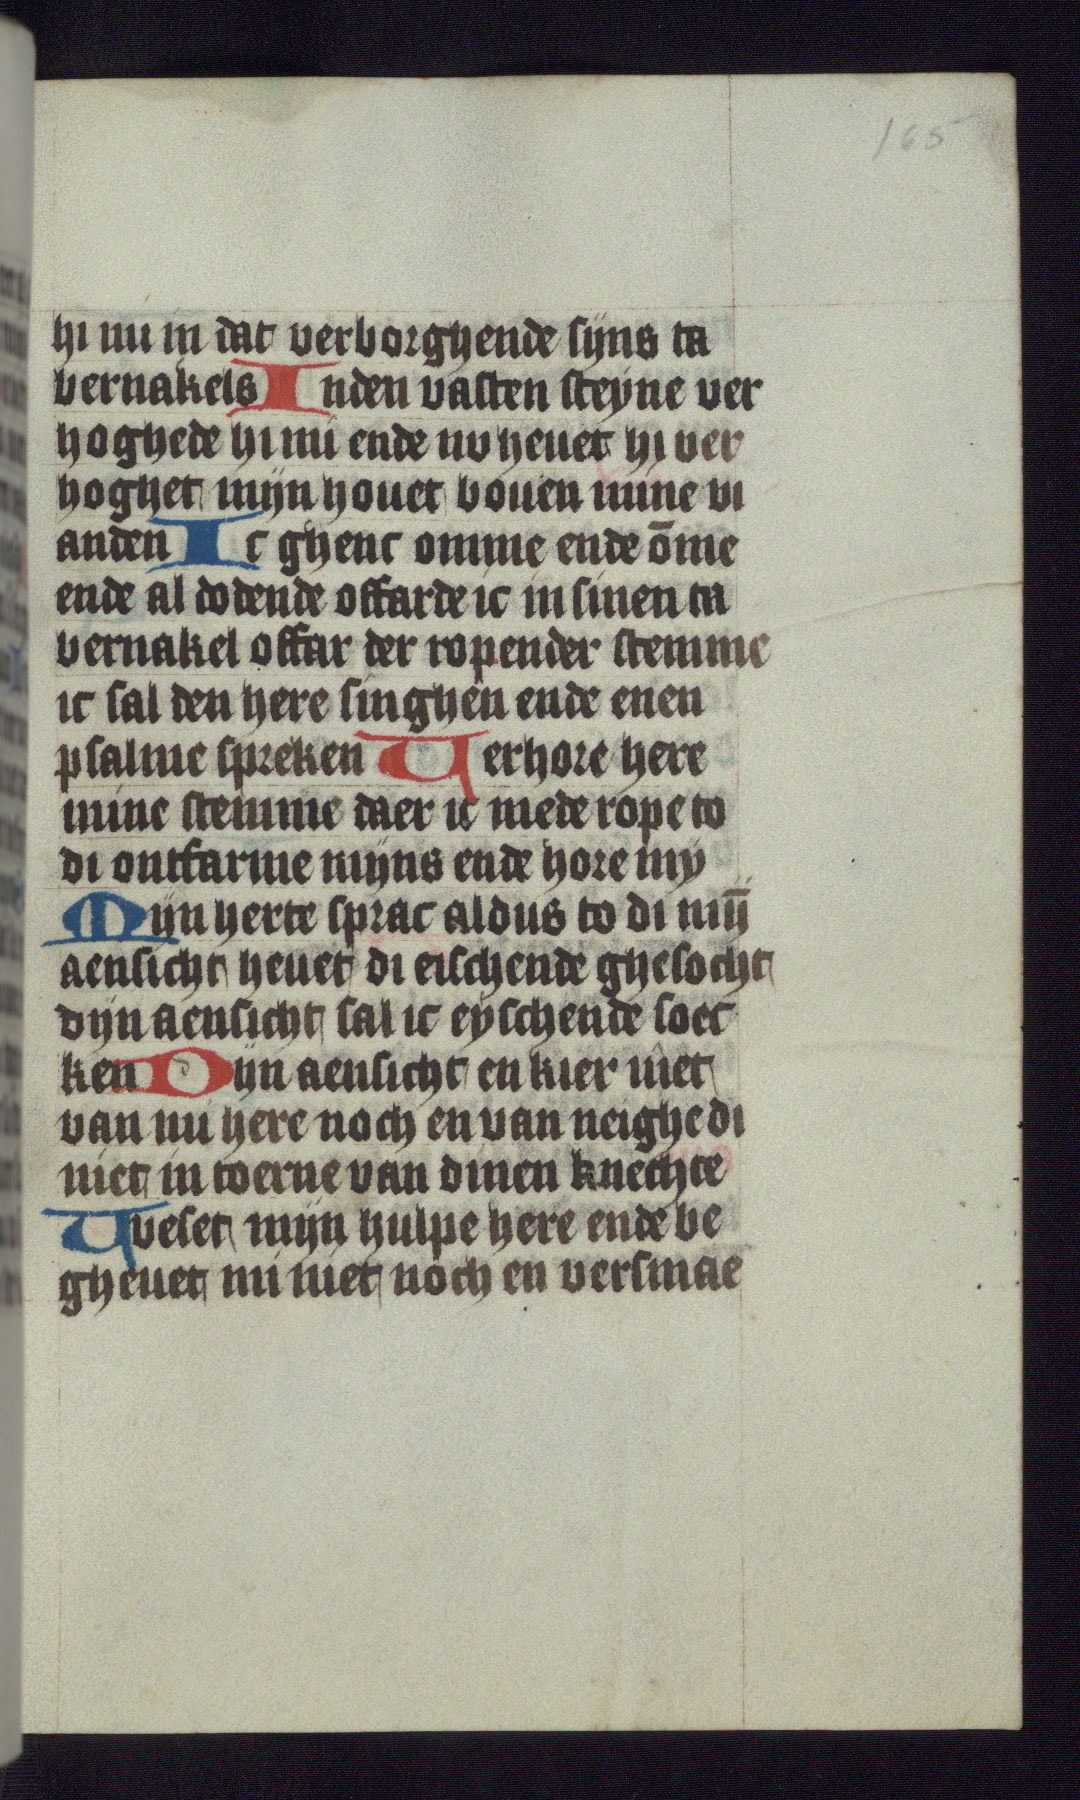 165
hi mi in dat verborghende sijns ta
bernakels Inden vasten steyne ver
hoghede hi mi ende nv heuet hi ver
hoghet mijn houet bouen mine vi
anden Ic ghenc omme ende ōme
ende al dodende offarde ic in sinen ta
bernakel offar der ropender stemme
ic sal den here singhen ende enen
psalme spreken Verhore here
mine stemme daer ic mede rope to
di ontfarme mijns ende hore my
Mijn herte sprac aldus to di mij̄
aensicht heuet di eischende ghesocht
dijn aensicht sal ic eyschende soec
ken Dijn aensicht en kier niet
van mi here noch en van neighe di
niet in toerne van dinen knechte
Vveset mijn hulpe here ende be
gheuet mi niet noch en versmae